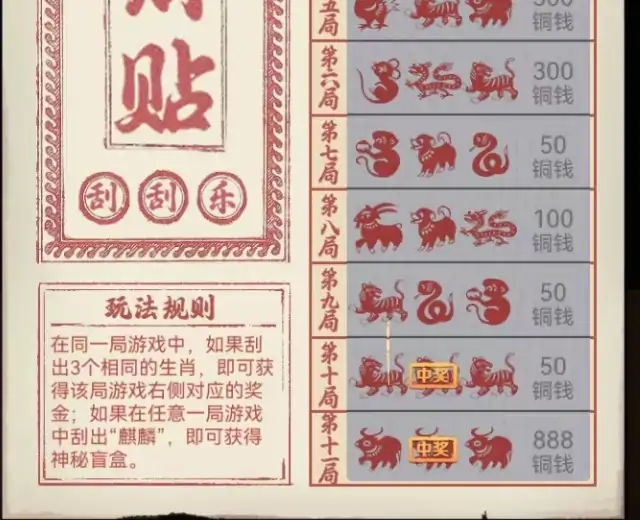 贴
刮刮乐
玩法规则
在同一局游戏中，如果刮
出3个相同的生肖，即可获
得该局游戏右侧对应的奖
金；如果在任意一局游戏
中刮出“麒麟”，即可获得
神秘盲盒。
五局
铜钱
第六局
300
铜钱
第七局
50
铜钱
第八局
100
铜钱
第九局
50
铜钱
第十局
中奖
50
铜钱
第十一局
中奖
888
铜钱